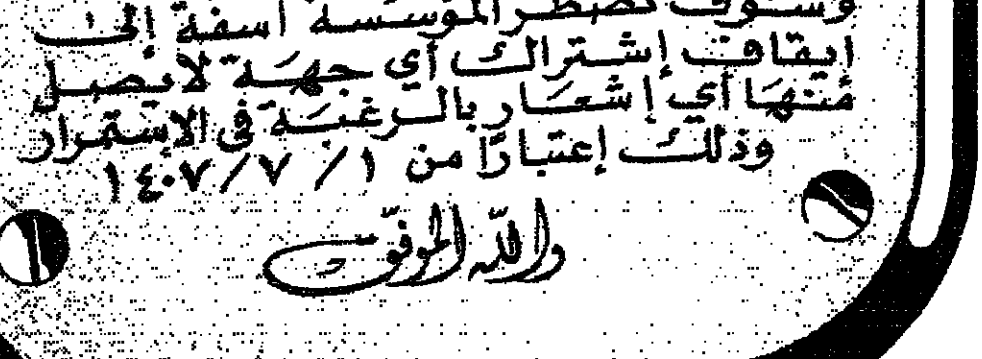 وسوف تضطر المؤسسة آسفة إلى
ايقاف إشتراك أي جهة لايصل
منها أي إشعار بالرغبة في الإستمرار
وذلك إعتبارًا من ١ / ٧ / ١٤٠٧
والله الموفق